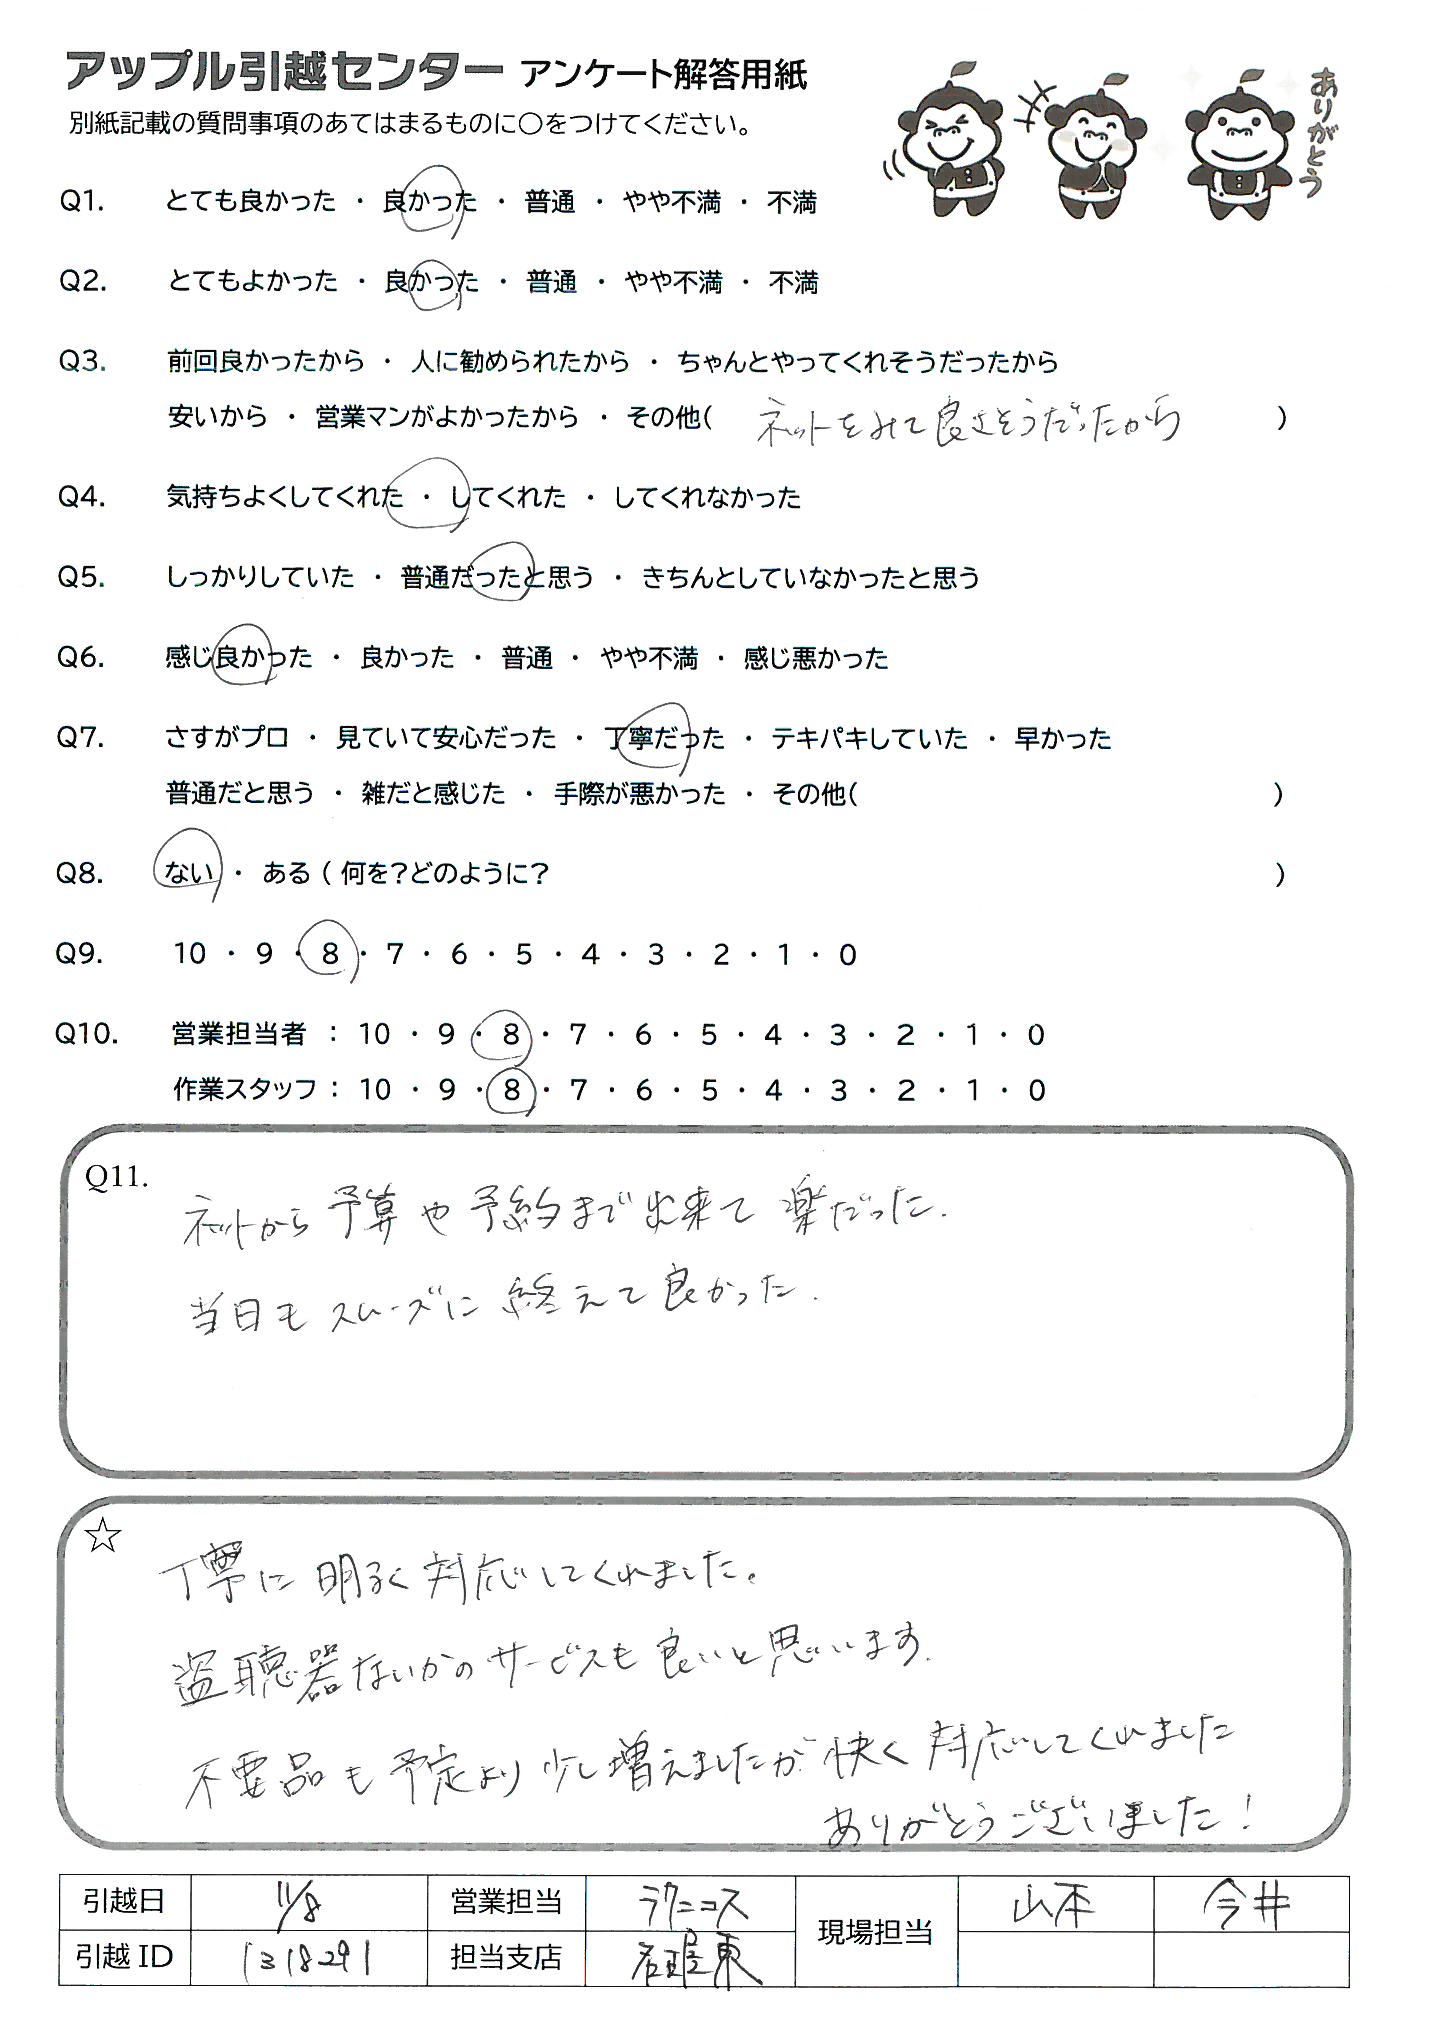 アップル引越センター アンケート解答用紙
別紙記載の質問事項のあてはまるものに○をつけてください。
ありがとう
Q1. とても良かった ・ 良かった ・ 普通 ・ やや不満 ・ 不満
Q2. とてもよかった ・ 良かった ・ 普通 ・ やや不満 ・ 不満
Q3. 前回良かったから ・ 人に勧められたから ・ ちゃんとやってくれそうだったから
安いから ・ 営業マンがよかったから ・ その他( ネットをみて良さそうだったから )
Q4. 気持ちよくしてくれた ・ してくれた ・ してくれなかった
Q5. しっかりしていた ・ 普通だったと思う ・ きちんとしていなかったと思う
Q6. 感じ良かった ・ 良かった ・ 普通 ・ やや不満 ・ 感じ悪かった
Q7. さすがプロ ・ 見ていて安心だった ・ 丁寧だった ・ テキパキしていた ・ 早かった
普通だと思う ・ 雑だと感じた ・ 手際が悪かった ・ その他( )
Q8. ない ・ ある ( 何を?どのように? )
Q9. 10 ・ 9 ・ 8 ・ 7 ・ 6 ・ 5 ・ 4 ・ 3 ・ 2 ・ 1 ・ 0
Q10. 営業担当者 : 10 ・ 9 ・ 8 ・ 7 ・ 6 ・ 5 ・ 4 ・ 3 ・ 2 ・ 1 ・ 0
作業スタッフ : 10 ・ 9 ・ 8 ・ 7 ・ 6 ・ 5 ・ 4 ・ 3 ・ 2 ・ 1 ・ 0
Q11.
ネットから予算や予約まで出来て楽だった.
当日もスムーズに終えて良かった.
☆
丁寧に明るく対応してくれました。
盗聴器ないかのサービスも良いと思います.
不要品も予定より少し増えましたが快く対応してくれました
ありがとうございました!
引越日 11/8 営業担当 ラクニコス 現場担当 山本 今井
引越ID 1318291 担当支店 名古屋東